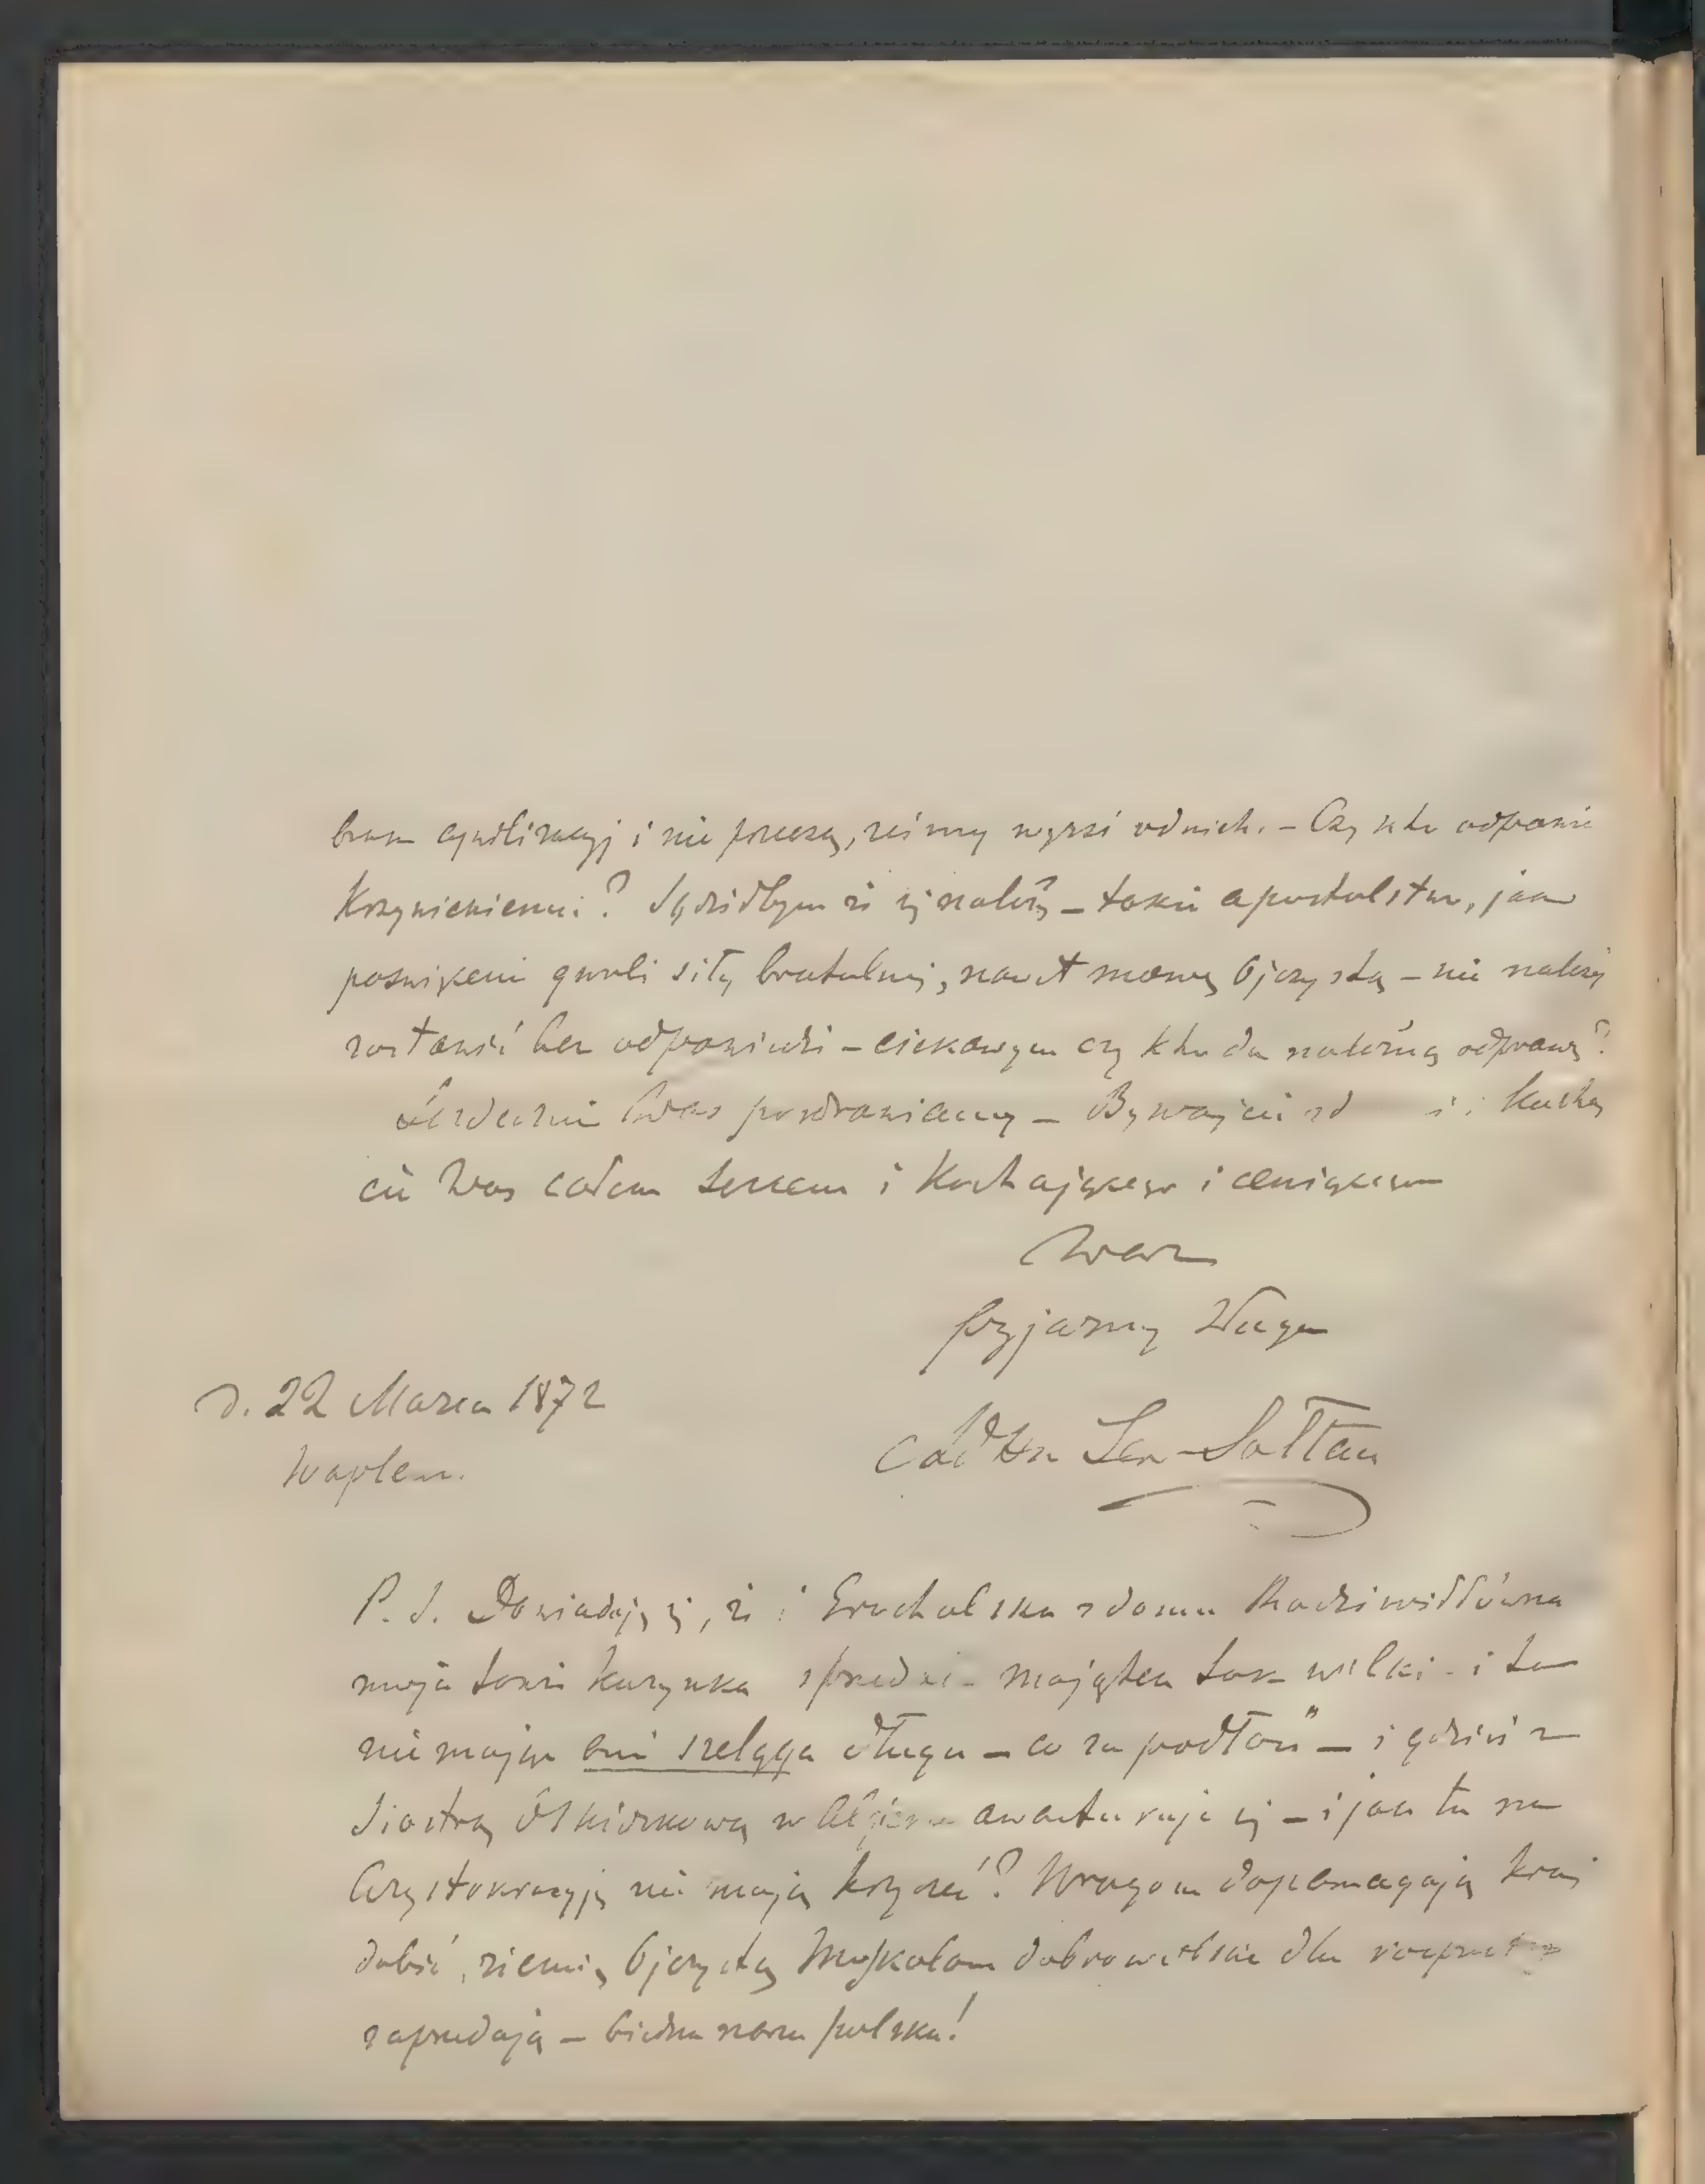 brak cywilizacyj i nie przeczę, żeśmy wyżsi od nich. – Czy kto odpowie
Krzywickiemu? Sądziłbym że się należy – takie apostolstwo, jak
poświęcenie gwoli siły brutalnej, nawet mowę Ojczystą – nie należy
zostawić bez odpowiedzi – ciekawym czy kto da należną odprawę?
Serdecznie Was pozdrawiamy – Bywajcie i Kochaj
cie Was całem sercem i Kochającego i ceniącego
Was
przyjazny Sługa
d. 22 Marca 1872
Waplew.
Adam Lew-Sołtan
P. S. Dowiaduję się, że i Grocholska z domu Radziwiłłówna
moja kuzynka sprzedaje majątek tak wielki i to
nie mając ani szeląga długu – co za podłość – i gdzieś z
Siostrą Oskierkową w Algierze awanturuje się – i jak tu na
Arystokracyję nie mają krzyczeć? Wrogom dopomagają kraj
dobić, ziemię Ojczystą Moskalom dobrowolnie dla
zaprzedają – biedna nasza Polska!